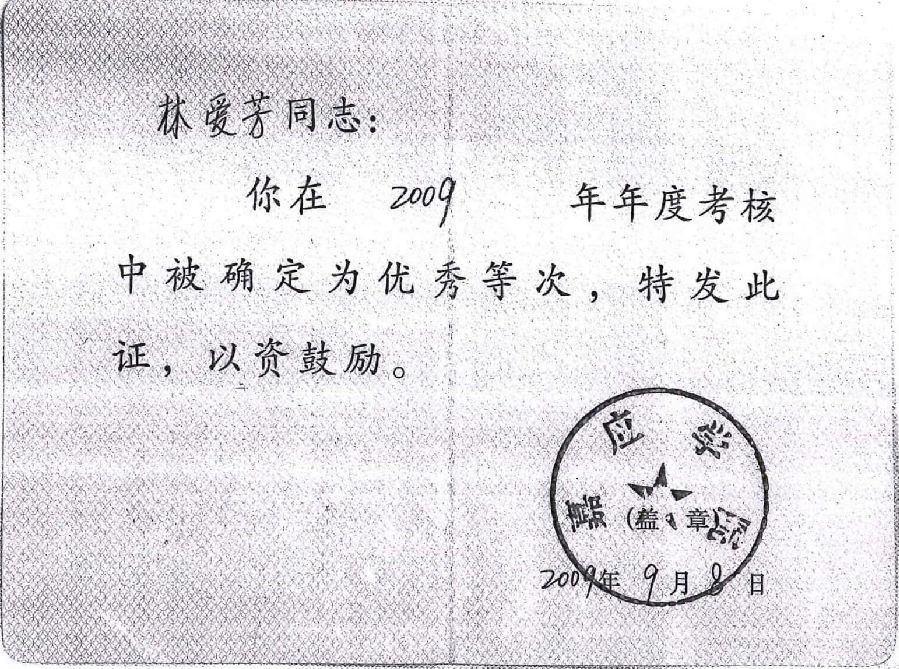 林爱芳同志：
你在 2009 年年度考核
中被确定为优秀等次，特发此
证，以资鼓励。
嘉应学院
（盖章）
2009年 9月 8日